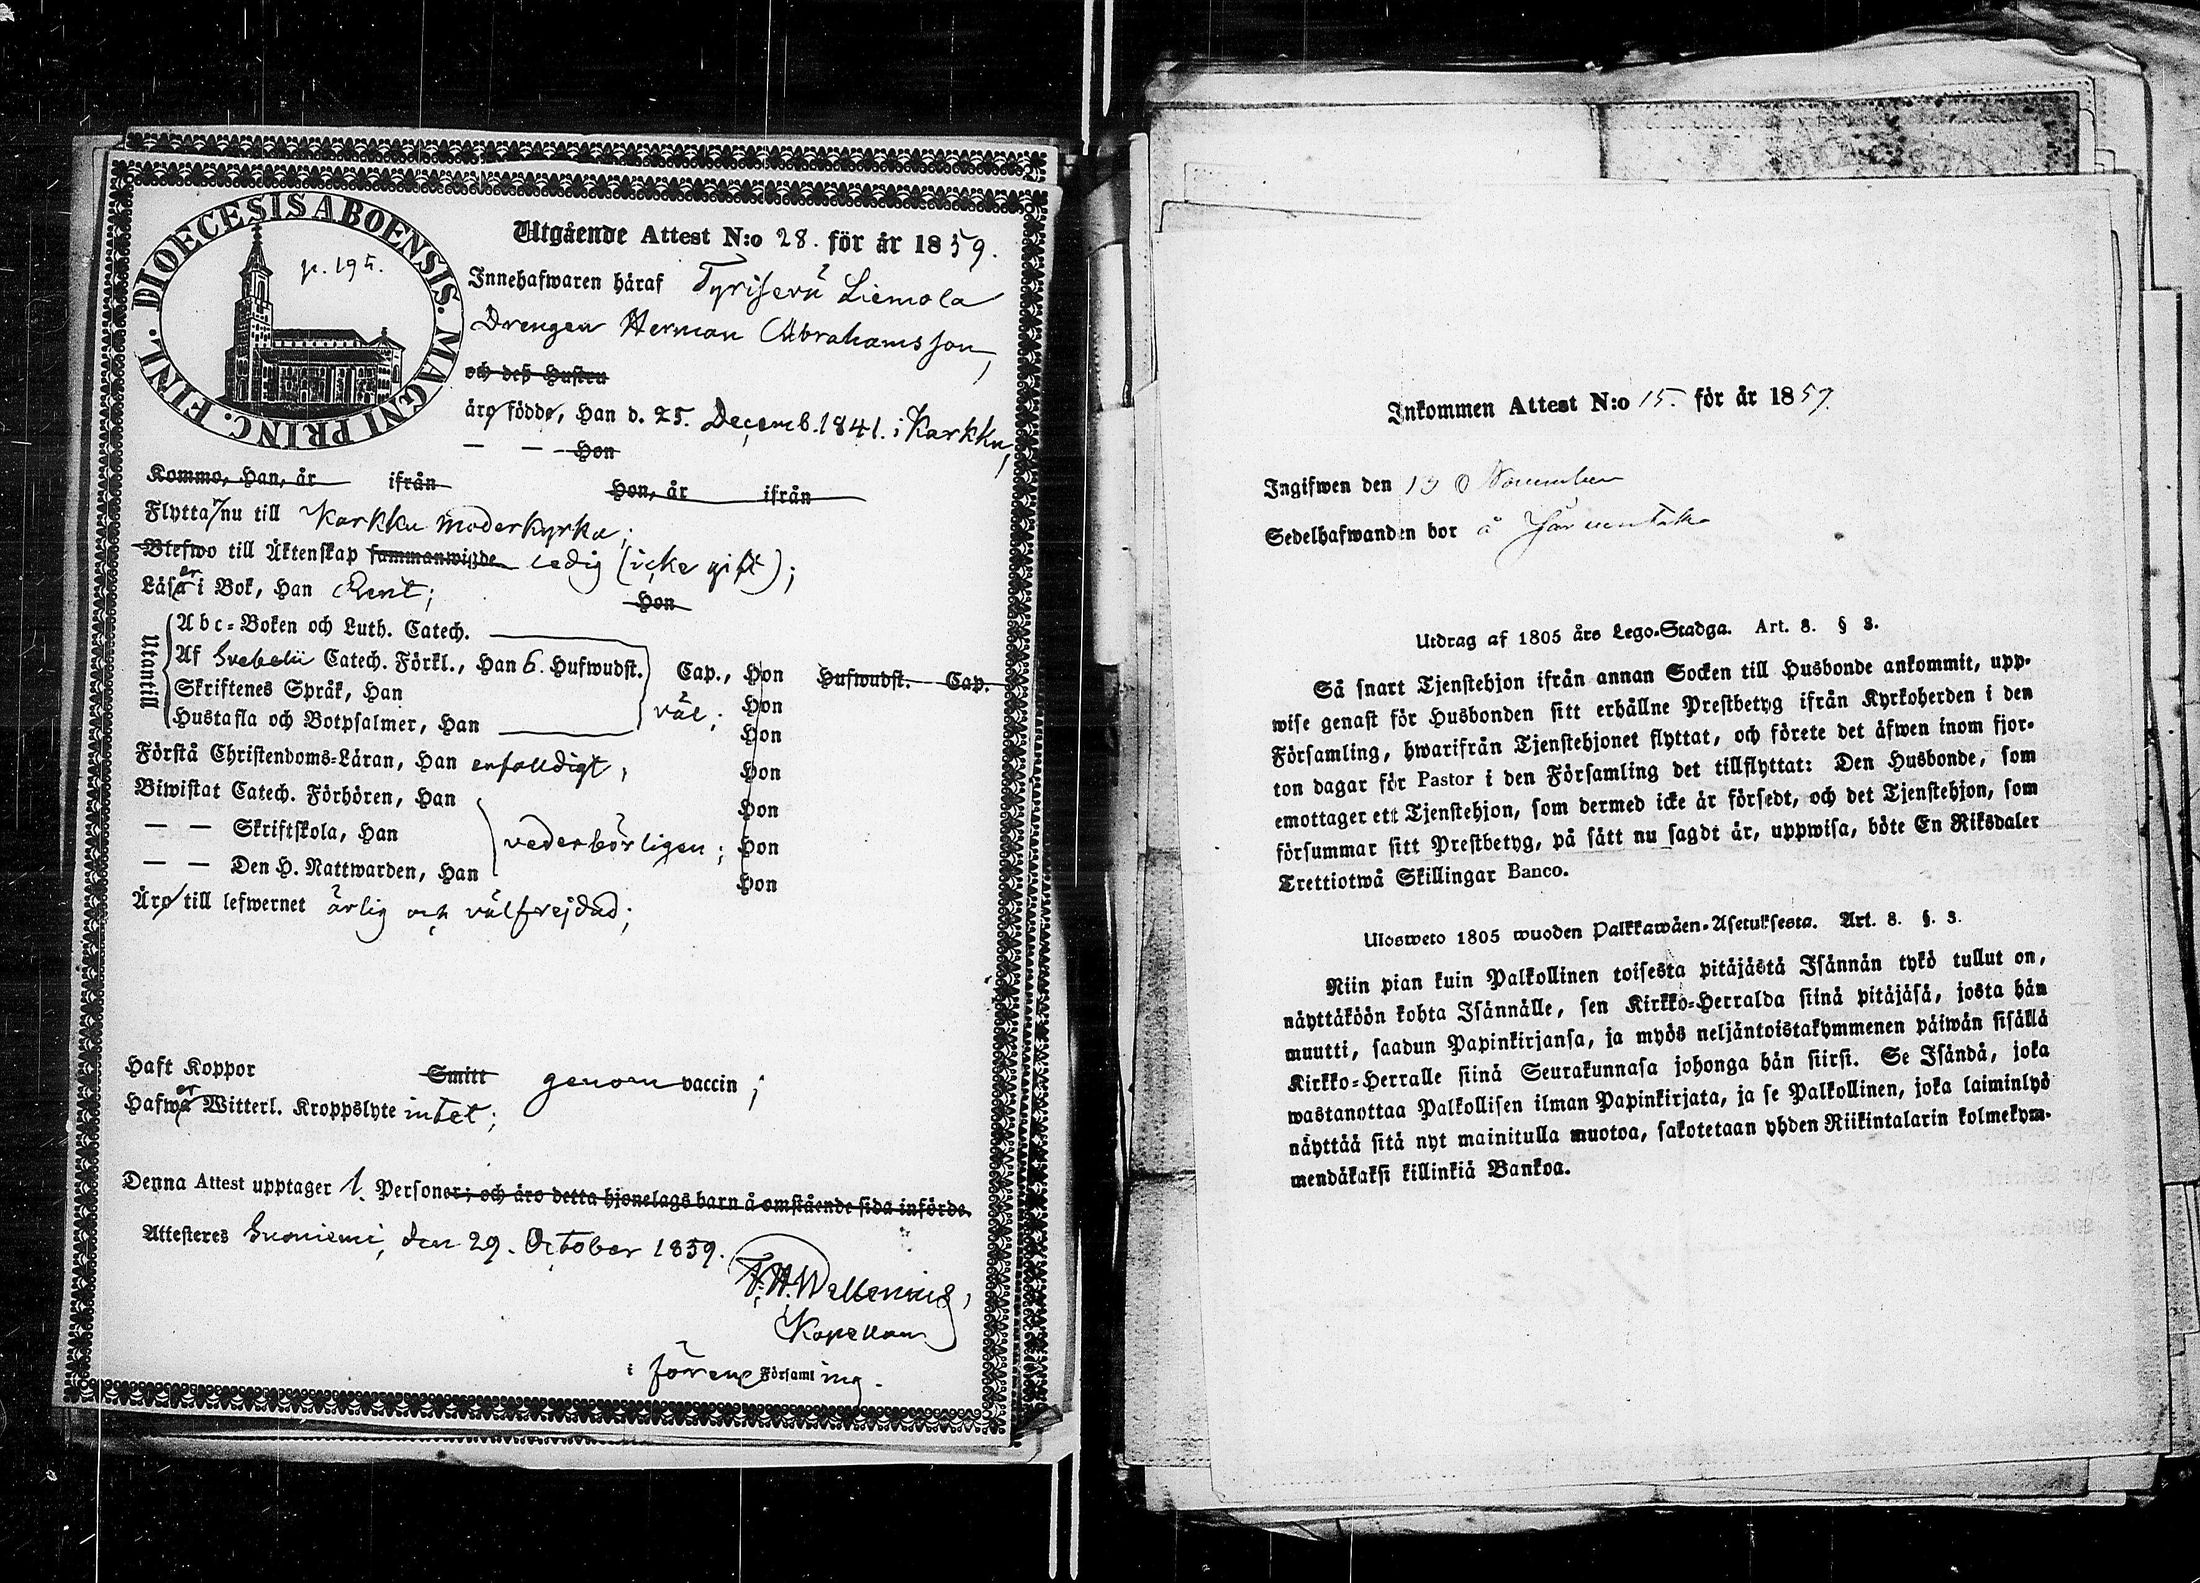 DIOECESIS ABOENSIS. MAGNI PRINC. FINL.
p. 195.
Utgående Attest N:o 28. för år 1859.
Innehafwaren häraf Tyriserü Liemola
Drengen Herman Abrahamsson,
och deß Hustru
äro födde, Han d. 25. Decemb. 1841. i Karkku,
— — Hon
Kommo, Han, år ifrån Hon, år ifrån
Flytta/nu till Karkku moderkyrka;
Blefwo till Äktenskap sammanwigde ledig (icke gift);
Läsaer i Bok, Han Rent; Hon
Utantill
Abc-Boken och Luth. Catech.
Af Svebelii Catech. Förkl., Han 6. Hufwudst. Cap., Hon Hufwudst. Cap.
Skriftenes Språk, Han väl; Hon
Hustafla och Botpsalmer, Han Hon
Förstå Christendoms-Läran, Han enfaldigt; Hon
Biwistat Catech. Förhören, Han Hon
— — Skriftskola, Han vederbörligen; Hon
— — Den H. Nattwarden, Han Hon
Äro till lefwernet ärlig och välfrejdad;
Haft Koppor Smitt genom vaccin;
Hafwaer Witterl. Kroppslyte intet;
Denna Attest upptager 1. Personer; och äro detta hjonelags barn å omstående sida införde.
Attesteres Suoniemi, den 29. October 1859.
F. H. Wallenius,
Kapellan
i förene Församling.
Inkommen Attest N:o 15. för år 1859.
Ingifwen den 13 November
Sedelhafwanden bor å
Utdrag af 1805 års Lego-Stadga. Art. 8. § 3.
Så snart Tjenstehjon ifrån annan Socken till Husbonde ankommit, upp-
wise genast för Husbonden sitt erhållne Prestbetyg ifrån Kyrkoherden i den
Församling, hwarifrån Tjenstehjonet flyttat, och förete det äfwen inom fjor-
ton dagar för Pastor i den Församling det tillflyttat: Den Husbonde, som
emottager ett Tjenstehjon, som dermed icke är försedt, och det Tjenstehjon, som
försummar sitt Prestbetyg, på sätt nu sagdt är, uppwisa, böte En Riksdaler
Trettiotwå Skillingar Banco.
Ulosweto 1805 wuoden Palkkawäen-Asetuksesta. Art. 8. §. 3.
Niin pian kuin Palkollinen toisesta pitäjästä Isännän tykö tullut on,
näyttäköön kohta Isännälle, sen Kirkko-Herralda siinä pitäjäsä, josta hän
muutti, saadun Papinkirjansa, ja myös neljäntoistakymmenen päiwän sisällä
Kirkko-Herralle siinä Seurakunnasa johonga hän siirsi. Se Isändä, joka
wastanottaa Palkollisen ilman Papinkirjata, ja se Palkollinen, joka laiminlyö
näyttää sitä nyt mainitulla muotoa, sakotetaan yhden Riikintalarin kolmekym-
mendäkaksi killinkiä Bankoa.